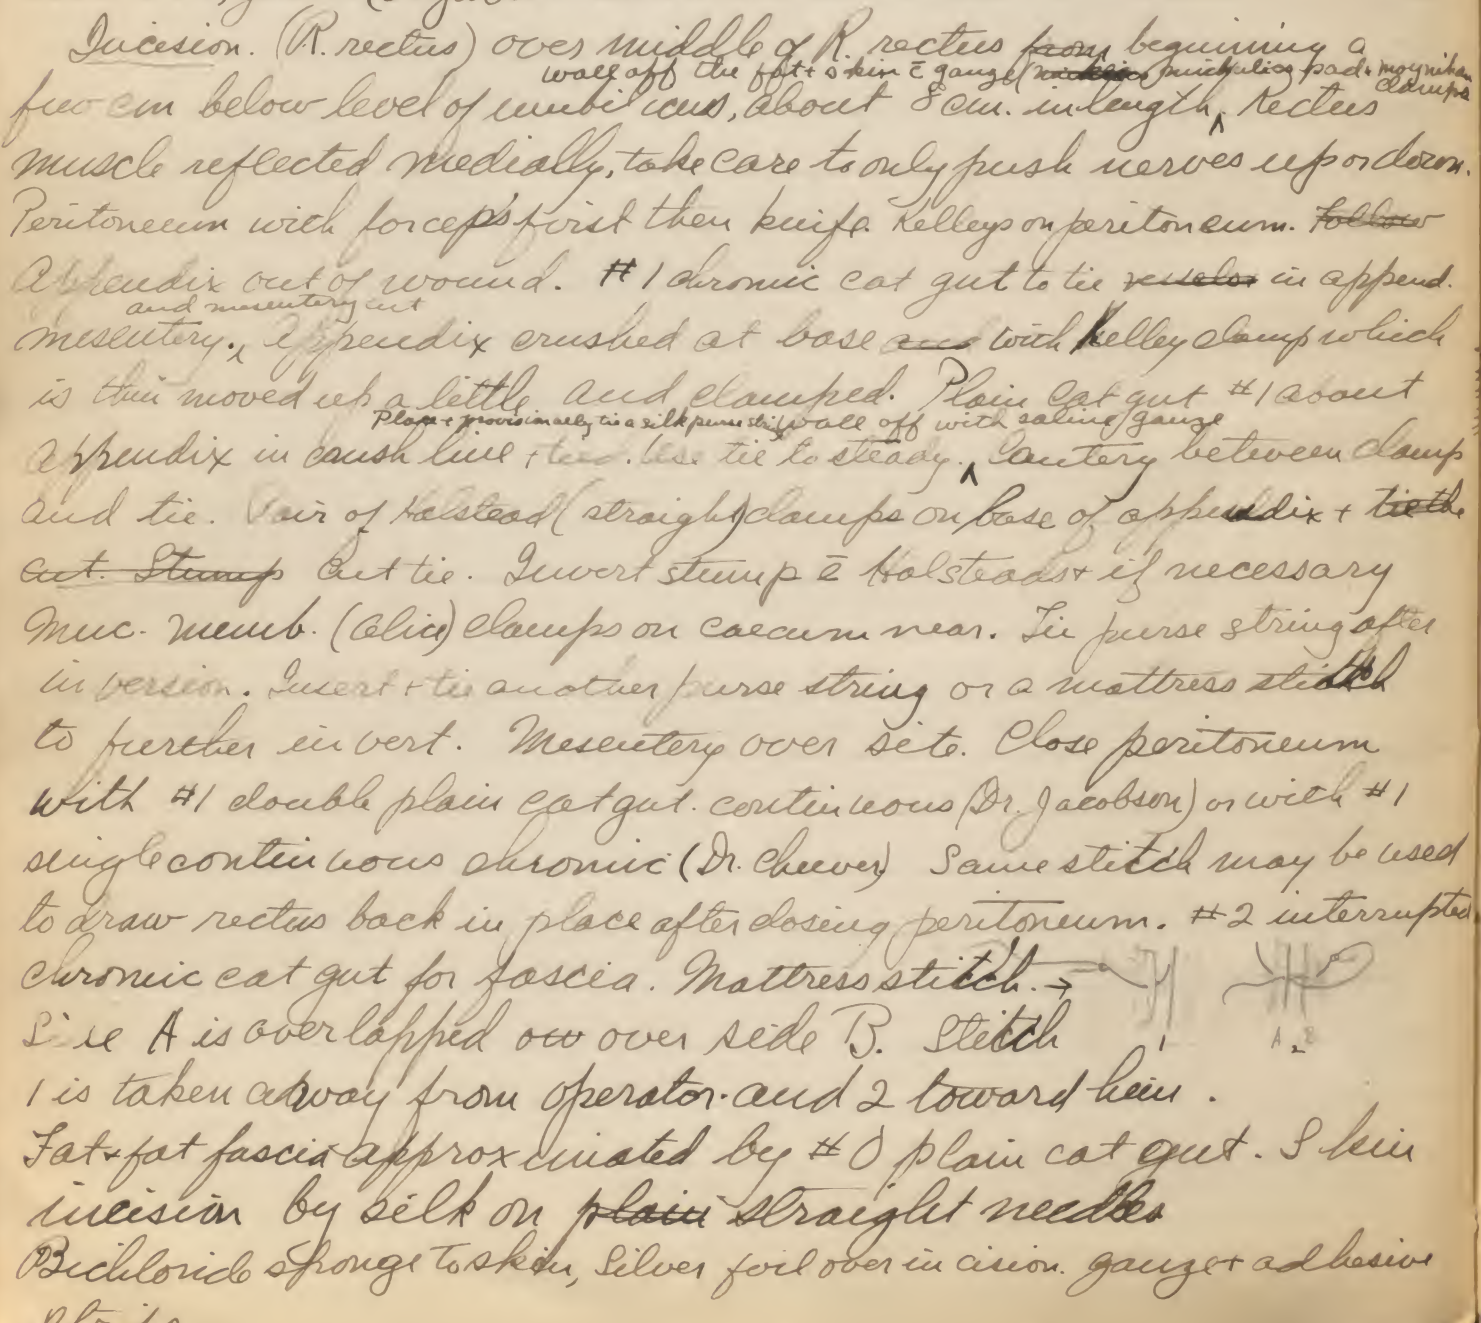 Incesion. (R. rectus) over middle of R. rectus from beginning a
wall off the fat + skin c̄ gauze (mickulics pad + moynihan clamps
few cm below level of umbilicus, about 8 cm. in length ‸. Rectus
muscle reflected medially, take care to only push nerves up or down.
Peritoneum with forceps first then knife. Kelleys on peritoneum. Follow
Appendix out of wound. #1 chromic cat gut to tie vessels in append.
and mesentery cut
mesentery. ‸ Appendix crushed at base and with Kelley clamp which
is then moved up a little and clamped. Plain cat gut #1 about
Place + provisionally tie a silk purse string wall off with saline gauze
appendix in crush line + tied. Use tie to steady. ‸ Cautery between clamp
and tie. Pair of Halstead (straight) clamps on base of appendix + tie the
cut. Stump Cut tie. Invert stump c̄ Halsteads + if necessary
Muc. memb. (Alice) clamps on caecum near. Tie purse string after
inversion. Insert + tie another purse string or a mattress stitch
to further invert. Mesentery over site. Close peritoneum
with #1 double plain cat gut. continuous (Dr. Jacobson) or with #1
single continuous chromic (Dr. Cheever) Same stitch may be used
to draw rectus back in place after closing peritoneum. #2 interrupted
chromic cat gut for fascia. Mattress stitch. →
Side A is overlapped ow over side B. Stitch
1 A 2 B
1 is taken away from operator and 2 toward him.
Fat + fat fascia approximated by #0 plain cat gut. Skin
incision by silk on plain straight needles
Bichloride sponge to skin, Silver foil over incision. gauze + adhesive